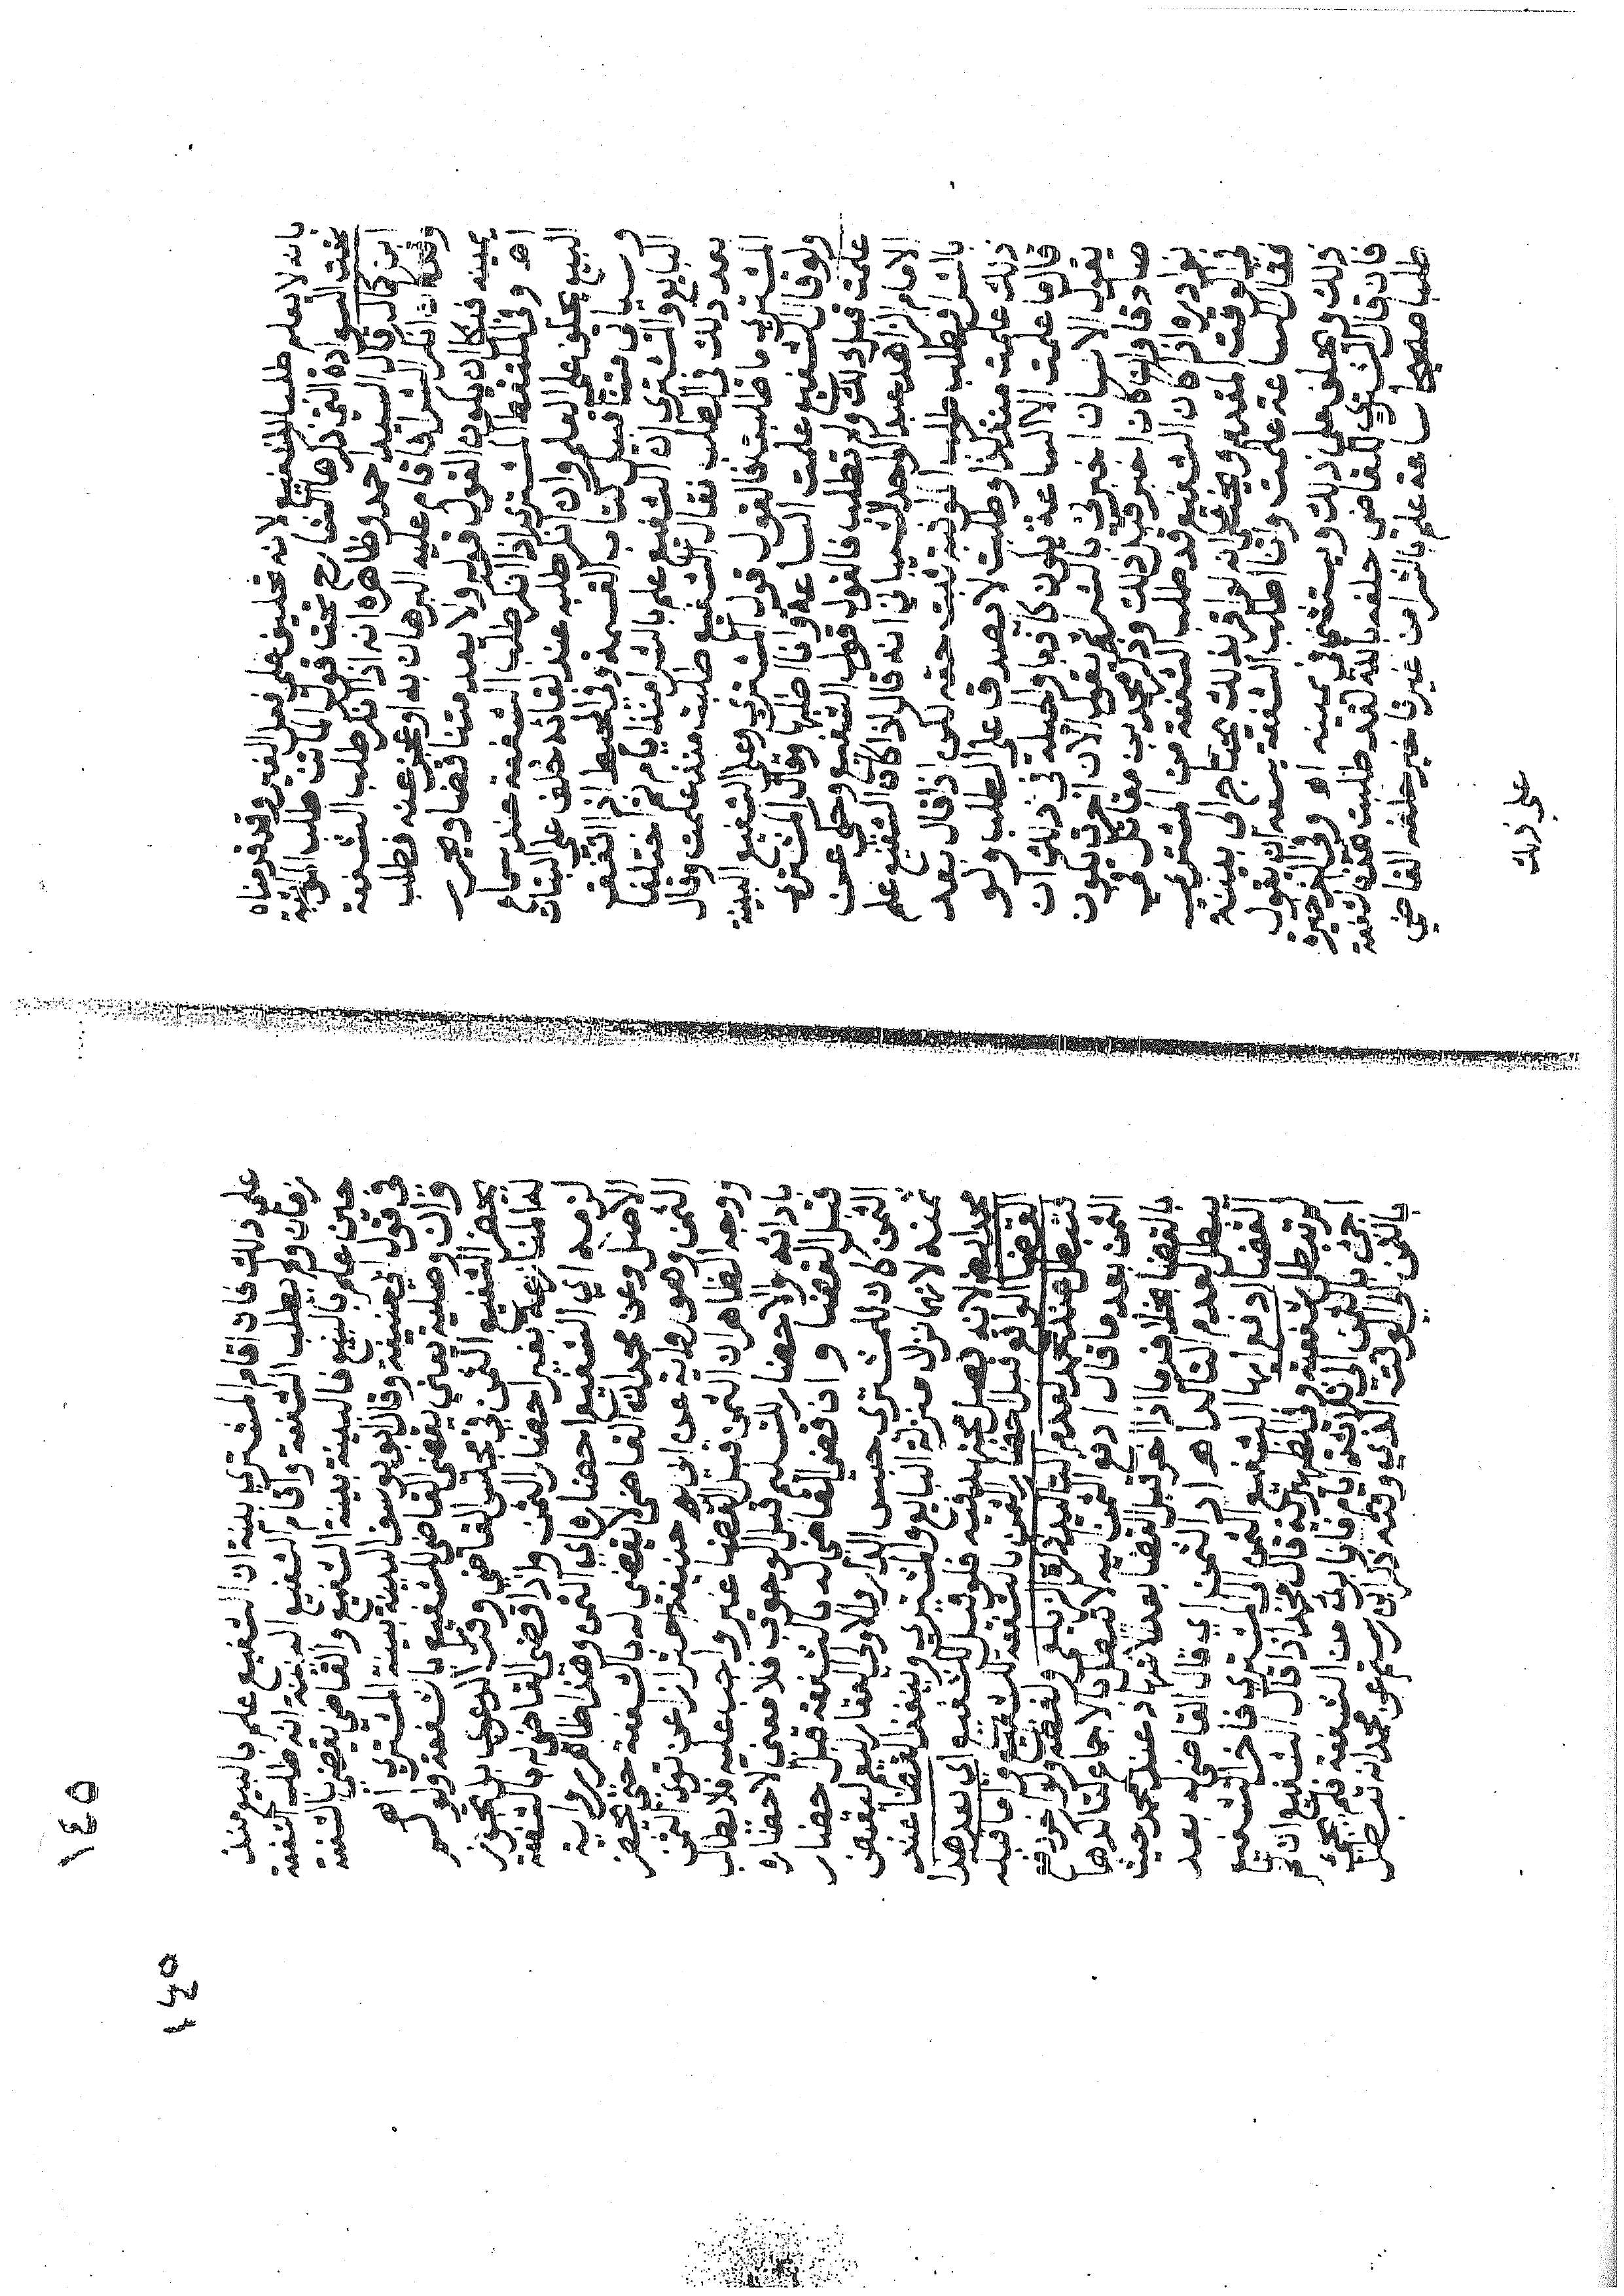 بانه لا يعلم طلب الشفيع لانه تحليف على فعل الغير وقد قدمناه
تحت السوادة التي ذكرها الشارح تحت قول الماتن طلب المواثبة
ابن كمال قال السيد احمد وظاهره انه اذا انكر طلب الشفعة
وقد انكر الشرا فاقام عليه البرهان به او عجز عنه فطلب
يمينه فنكل ان يكون القول قوله ولا يعد متناقضا ويحرر
اه وفي الملتقط المشتري اذا انكر طلب الشفعة عند سماع
البيع يحلف على العلم وان انكر طلبه عند لقائه حلف على البتات
وسياتي متنا قبيل كتاب القسمة وفي المحيط اذا اتفقا
البايع والمشتري ان الشفيع علم بالشرا منذ ايام ثم اختلفا
بعد ذلك في الطلب فقال الشفيع طلبت منذ علمت وقال
المشتري ما طلبت فالقول قول المشتري وعلى الشفيع البينة
ولو قال الشفيع علمت الساعة وانا اطلبها وقال المشتري
علمت قبل ذلك ولم تطلب فالقول قول الشفيع وحكي عن
الامام الزاهد عبد الواحد الشيباني انه قال اذا كان الشفيع علم
بالشرا وطلب طلب المواثبة ثبت حقه لكن اذا قال بعد
ذلك علمت منذ كذا وطلبت لا يصدق على الطلب ولو
قال ما علمت الا الساعة يكون كاذبا والحيلة في ذلك ان
يقول لانسان اخبرني بالشرا ثم يقول الان اخبرت يكون
صادقا وان كان اخبر قبل ذلك وذكر محمد بن مقاتل في
نوادره اذا كان الشفيع قد طلب الشفعة من المشتري
في الوقت المتقدم ويخشى انه لو اقر بذلك يحتاج الى بينة
فقال الساعة علمت وانا اطلب الشفعة يسعه ان يقول
ذلك ويحلف على ذلك ويستثني في يمينه اه وفي الذخيرة
فان قال المشتري للقاضي حلفه بالله لقد طلبت هذه الشفعة
طلبا صحيحا ساعة علم بالشرا من غير تاخير حلفه القاضي
على ذلك
على ذلك فان اقام المشتري بينة ان الشفيع علم بالبيع منذ
زمان ولم يطلب الشفعة واقام الشفيع البينة انه طلب الشفعة
حين علم بالبيع فالبينة بينة الشفيع والقاضي يقضي بالشفعة
في قول ابي حنيفة وقال ابو يوسف البينة بينة المشتري اه
وان وصلية يعني يقضي القاضي للشفيع بالشفعة ولو لم
يحضر الشفيع الثمن في مجلس القاضي وقت الدعوى بل يجوز
له المنازعة بغير احضار الثمن واذا قضى القاضي له بالشفعة
لزمه اي الشفيع احضاره اي الثمن وهذا ظاهر رواية
الاصل وعن محمد ان القاضي لا يقضي له بالشفعة حتى يحضر
الثمن وهو رواية عن ابي حنيفة احترازا عن توى الثمن
ووجه الظاهر ان الثمن قبل القضا غير واجب عليه فلا يطالب
بادائه ولا احضار للتسليم قبل الوجوب فلا معنى لاحضاره
قبل القضا واذا قضى القاضي له بالشفعة قبل احضار
الثمن كان للمشتري حبس الدار والاولى العقار ليعم ليقبض
ثمنه لانهما نزلا منزلة البايع والمشتري وينفذ القضا عند
محمد ايضا لانه فصل مجتهد فيه فلو قيل للشفيع اي بعد هذا
القضا الواقع قبل احضار الثمن بالشفعة للشفيع واما قبله
فتبطل عند محمد لعدم التاكيد ذكره الزيلعي ولفظه ولو اخر دفع
الثمن بعد ما قال ادفع الثمن اليه لا تبطل بالاجماع لتاكدها
بالقضا بخلاف ما اذا اخر قبل القضا بعد الاشهاد عند محمد حيث
تبطل لعدم التاكد اه اد الثمن اي قال القاضي له بعد
القضا ادفع ايها الشفيع الثمن الى المشتري فاخر الشفيع
لم تبطل شفعته وفي الظهيرية قال محمد اذا قال الشفيع ان لم
اجئ بالثمن الى ثلاثة ايام فانا بريء من الشفعة فلم يجئ
بالثمن الى الوقت الذي وقته ذكر ابن رستم عن محمد انه تبطل
١٤٥
١٤٥